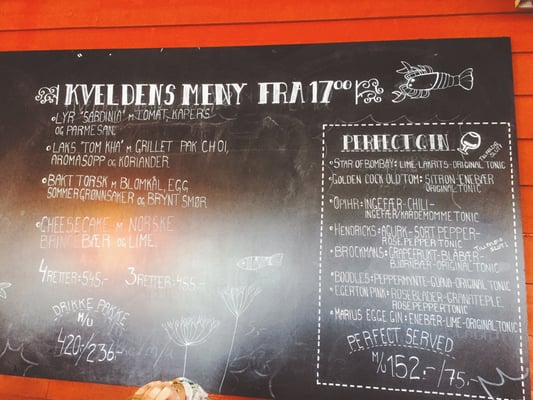 KVELDENS MENY FRA 17⁰⁰
• LYR "SARDINIA" M TOMAT, KAPERS
OG PARMESAN.
• LAKS "TOM KHA" M GRILLET PAK CHOI,
AROMASOPP OG KORIANDER
• BAKT TORSK M BLOMKÅL, EGG
SOMMERGRØNNSAKER OG BRYNT SMØR
• CHEESECAKE M NORSKE
BRINGEBÆR OG LIME.
4 RETTER: 545,- 3 RETTER: 455,-
DRIKKE PAKKE
M/U
420,-/236,-
PERFECT GIN
• STAR OF BOMBAY: LIME-LAKRITS-ORIGINAL TONIC
• GOLDEN COCK OLD TOM: SITRON-ENEBÆR
ORIGINAL TONIC
• OPIHR: INGEFÆR-CHILI-
INGEFÆR/KARDEMOMME TONIC
• HENDRICKS: AGURK-SORT PEPPER-
ROSEPEPPER TONIC
• BROCKMANS: GRAPEFRUKT-BLÅBÆR-
BJØRNBÆR-ORIGINAL TONIC
• BOODLES: PEPPERMYNTE-GUAVA-ORIGINAL TONIC
• EGERTON PINK: ROSEBLADER-GRANATEPLE
ROSEPEPPER TONIC
• MARIUS EGGE GIN: ENEBÆR-LIME-ORIGINAL TONIC
PERFECT SERVED
M/U 152,-/75,-